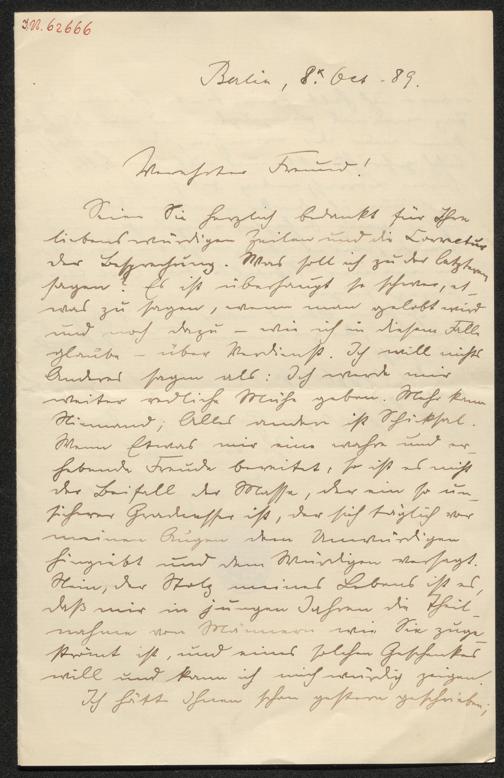 I.N. 62666
Berlin, 8. Oct. 89.
Verehrter Freund!
Seien Sie herzlich bedankt für Ihre
liebenswürdigen Zeilen und die Correctur
der Besprechung. Was soll ich zu der letzteren
sagen? Es ist überhaupt so schwer, et-
was zu sagen, wenn man gelobt wird
und noch dazu – wie ich in diesem Falle
glaube – über Verdienst. Ich will nichts
Anderes sagen als: Ich werde mir
weiter redliche Mühe geben. Mehr kann
Niemand; Alles andere ist Schicksal.
Wenn Etwas mir eine wahre und er-
hebende Freude bereitet, so ist es nicht
der Beifall der Masse, der ein so un-
sicherer Gradmesser ist, der sich täglich vor
meinen Augen dem Unwürdigen
hingiebt und dem Würdigen versagt.
Nein, der Stolz meines Lebens ist es,
daß mir in jungen Jahren die Theil-
nahme von Männern wie Sie zuge-
strömt ist, und eines solchen Geschenkes
will und kann ich mich würdig zeigen.
Ich hätte Ihnen schon gestern geschrieben;